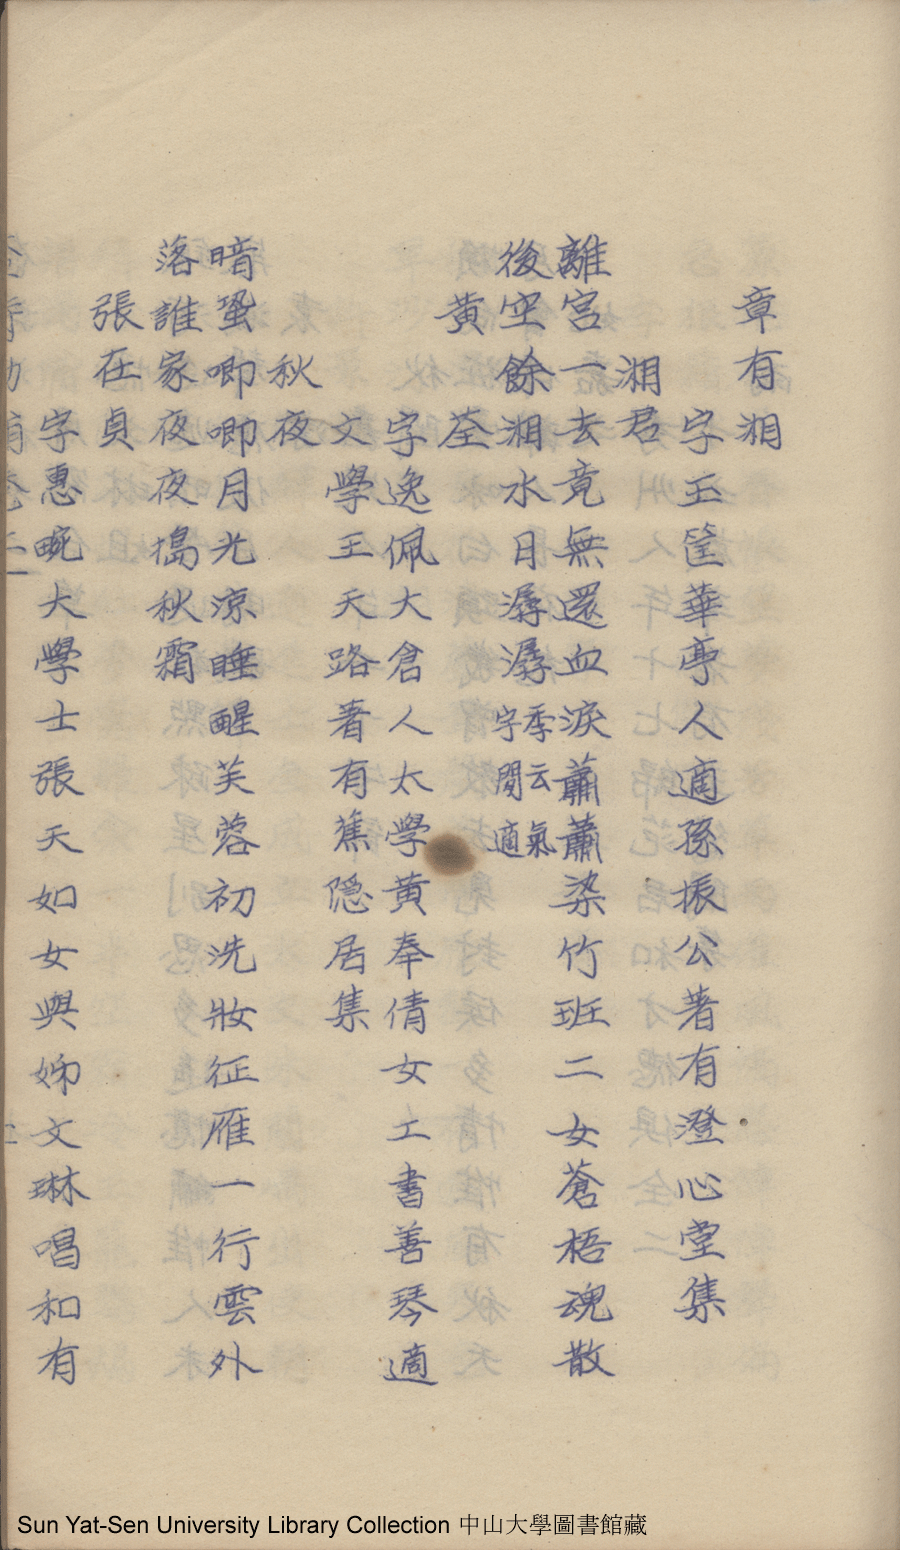 章有湘
字玉筐華亭人適孫振公著有澄心堂集
湘君
離宮一去竟無還血淚蕭蕭染竹班二女蒼梧魂散
後空餘湘水日潺潺季云氣
字閒適
黃荃
字逸佩大倉人太學黃奉倩女工書善琴適
文學王天路著有蕉隠居集
秋夜
暗蛩唧唧月光涼睡醒芙蓉初洗妝征雁一行雲外
落誰家夜夜搗秋霜
張在貞
字惠畹大學士張天如女與姊文琳唱和有
Sun Yat-Sen University Library Collection 中山大學圖書館藏